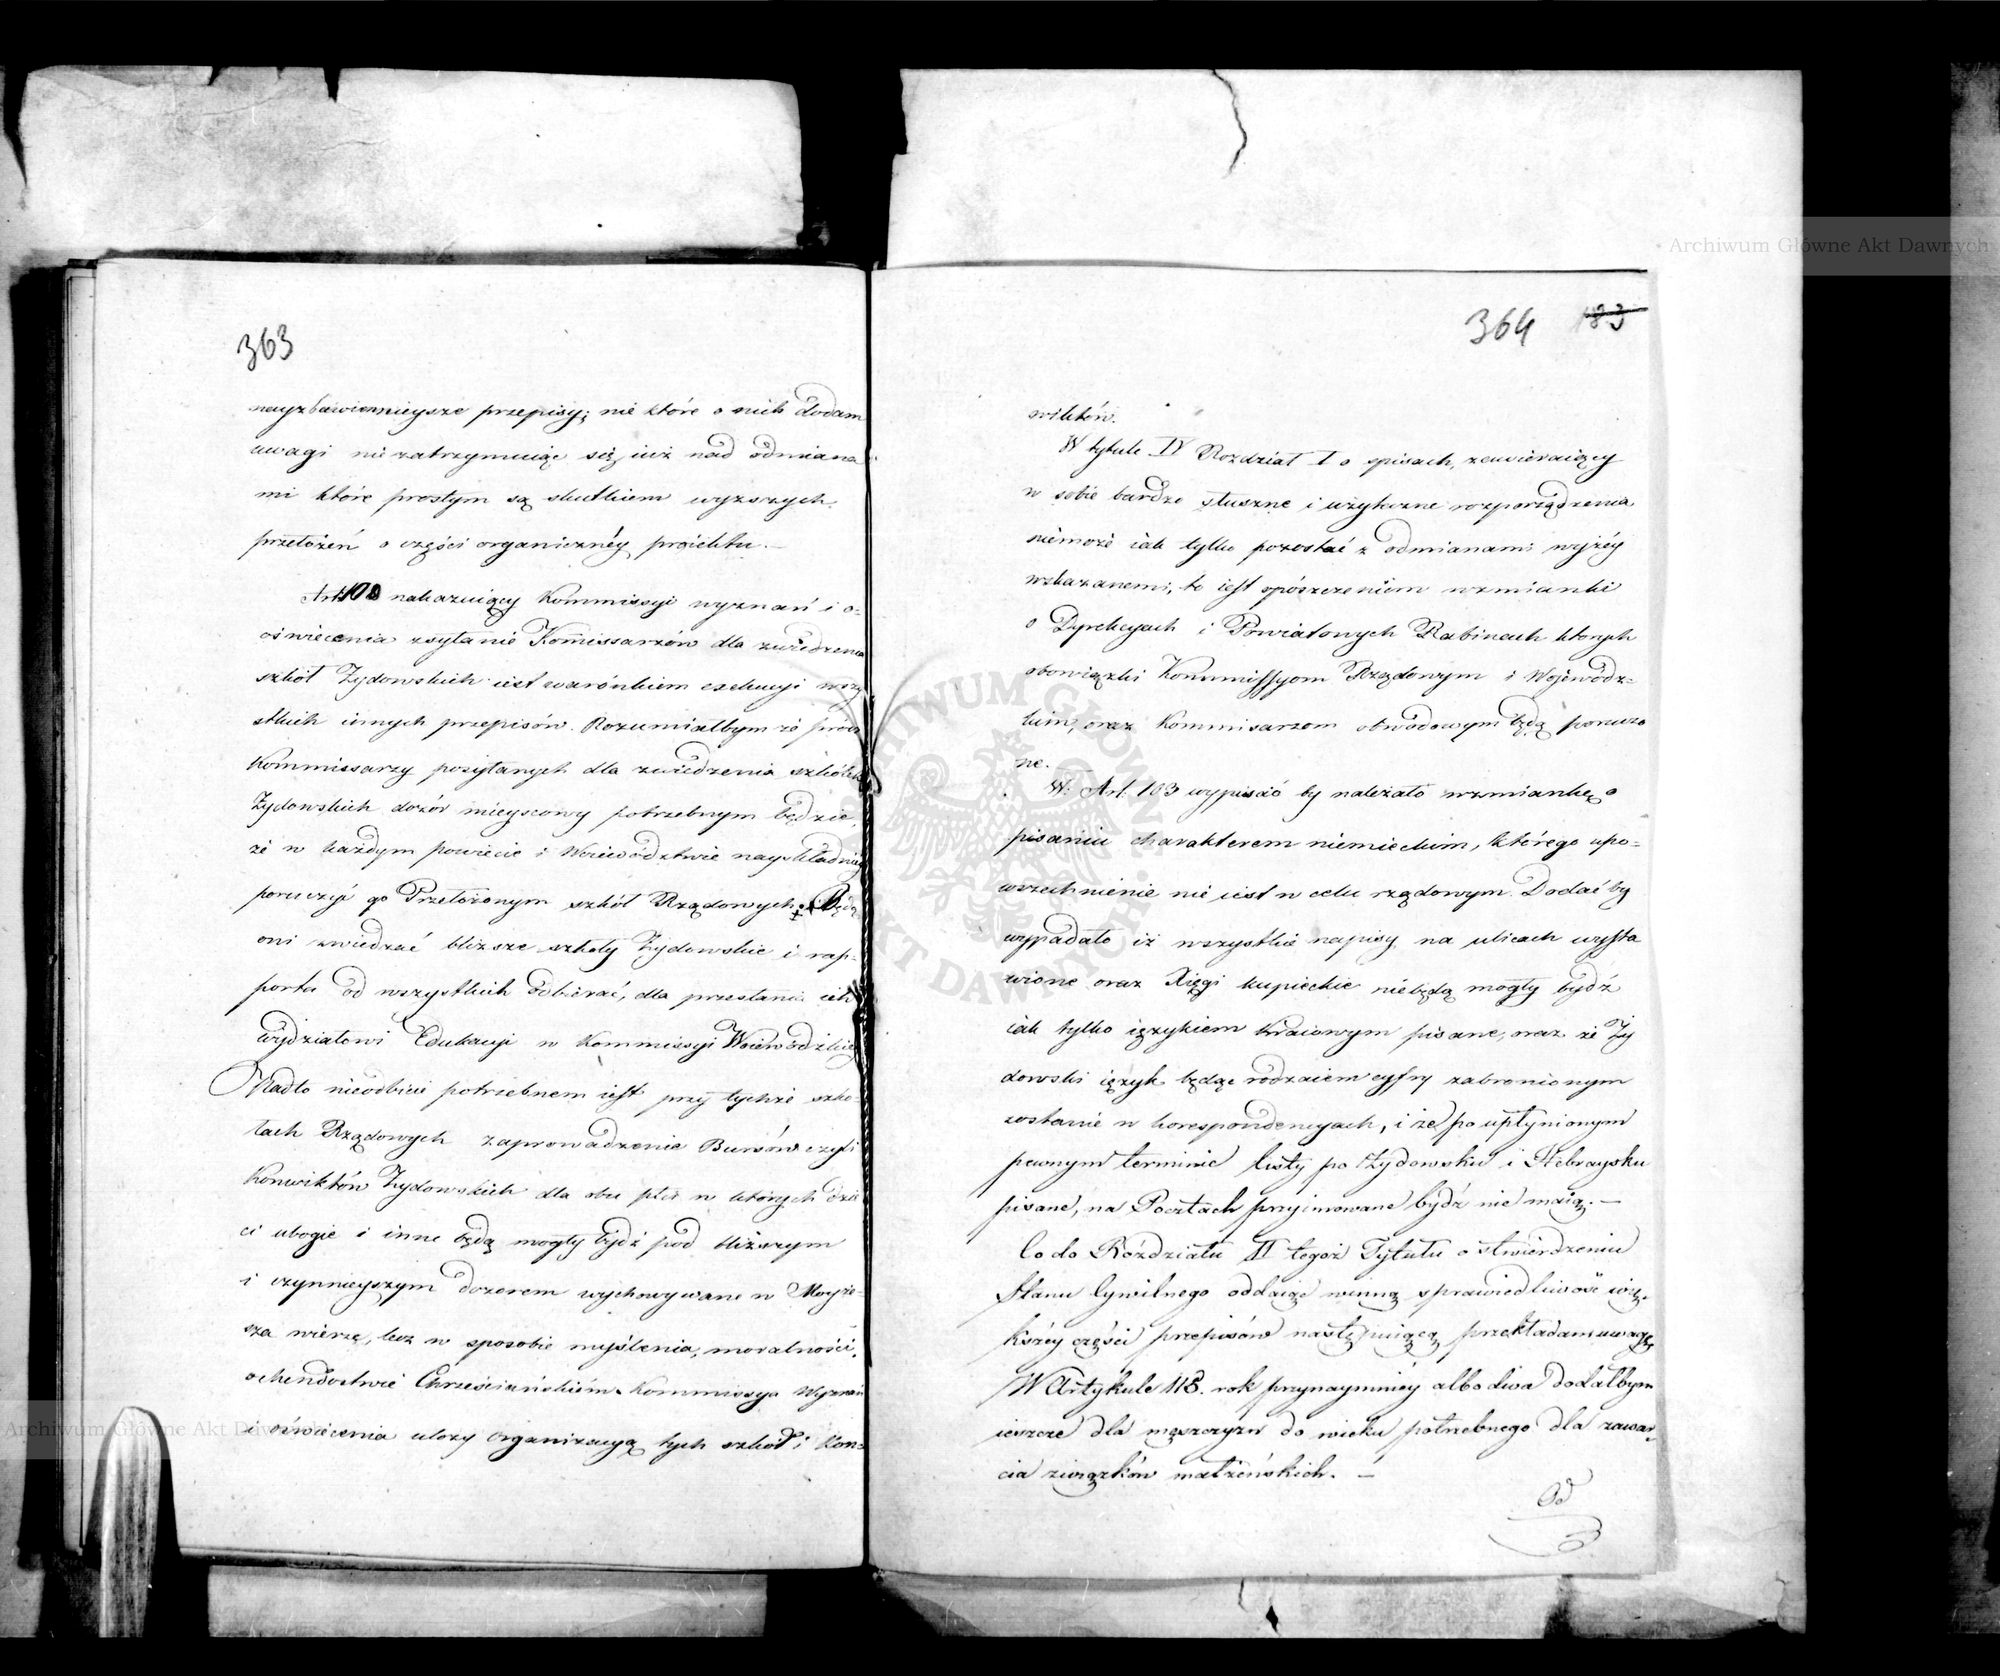 363
nayzbawiennieysze przepisy; nie które o nich dodam
uwagi nie zatrzymuiąc się iuż nad odmiana
mi które prostym są skutkiem wyższych
przełożeń o części organicznéy proiektu. —
Art 100 nakazuiący Kommissyi wyznań i o-
oświecenia zsyłanie Komissarzów dla zwiedzenia
szkół Żydowskich iest warónkiem exekucyi wszy
stkich innych przepisów. Rozumiałbym że prócz
Kommissarzy posyłanych dla zwiedzenia szkółek
Żydowskich dozór mieyscowy potrzebnym będzie,
że w każdym powiecie i Woiewództwie nayskładniey
poruczyć go Przełożonym szkół Rządowych. Będą
oni zwiedzać bliższe szkoły Żydowskie i rap-
porta od wszystkich odbierać, dla przesłania ich
wydziałowi Edukacyi w Kommissyi Woiewódzkiey
Nadto nieodbicie potrzebnem iest przy tychże szko-
łach Rządowych zaprowadzenie Bursów czyli
Konwiktów Żydowskich dla obu płci w których dzie
ci ubogie i inne będą mogły bydź pod bliższym
i czynnieyszym dozorem wychowywane w Moyże-
sza wierze, lecz w sposobie myślenia, moralności,
ochendostwie Chrześciańskiém. Kommissya Wyznań
i oświecenia ułoży organizacyą tych szkół i Kon-
364 183
wiktów.
W tytule IV Rozdział I o spisach, zawieraiący
w sobie bardzo słuszne i użyteczne rozporządzenia
niemoże iak tylko pozostać z odmianami wyżéy
wskazanemi, to iest opószczeniem wzmianki
o Dyrekcyach i Powiatowych Rabinach których
obowiązki Kommissyom Rządowym i Wojewódz-
kim, oraz Kommisarzom obwodowym będą poruczo
ne. —
W. Art. 103 wypuścić by należało wzmiankę o
pisaniu charakterem niemieckim, którego upo-
wszechnienie nie iest w celu rządowym. Dodać by
wypadało iż wszystkie napisy na ulicach wysta
wione oraz Xięgi kupieckie niebędą mogły bydź
iak tylko ięzykiem kraiowym pisane, oraz że Ży
dowski ięzyk będąc rodzaiem cyfry zabronionym
zostanie w korespondencyach, i że po upłynionym
pewnym terminie listy po Żydowsku i Hebraysku
pisane, na Pocztach przyimowane bydź nie maią. —
Co do Rózdziału II tegoż Tytułu o stwierdzeniu
Stanu Cywilnego oddaiąc winną sprawiedliwość więk-
kszéy części przepisów następuiącą przekładam uwagę
W Artykule 118. rok przynaymniéy albo dwa dodałbym
ieszcze dla męszczyzn do wieku potrzebnego dla zawar-
cia związków małżeńskich. —
Od
Archiwum Główne Akt Dawnych
ARCHIWUM GŁÓWNE AKT DAWNYCH
Archiwum Główne Akt Dawnych